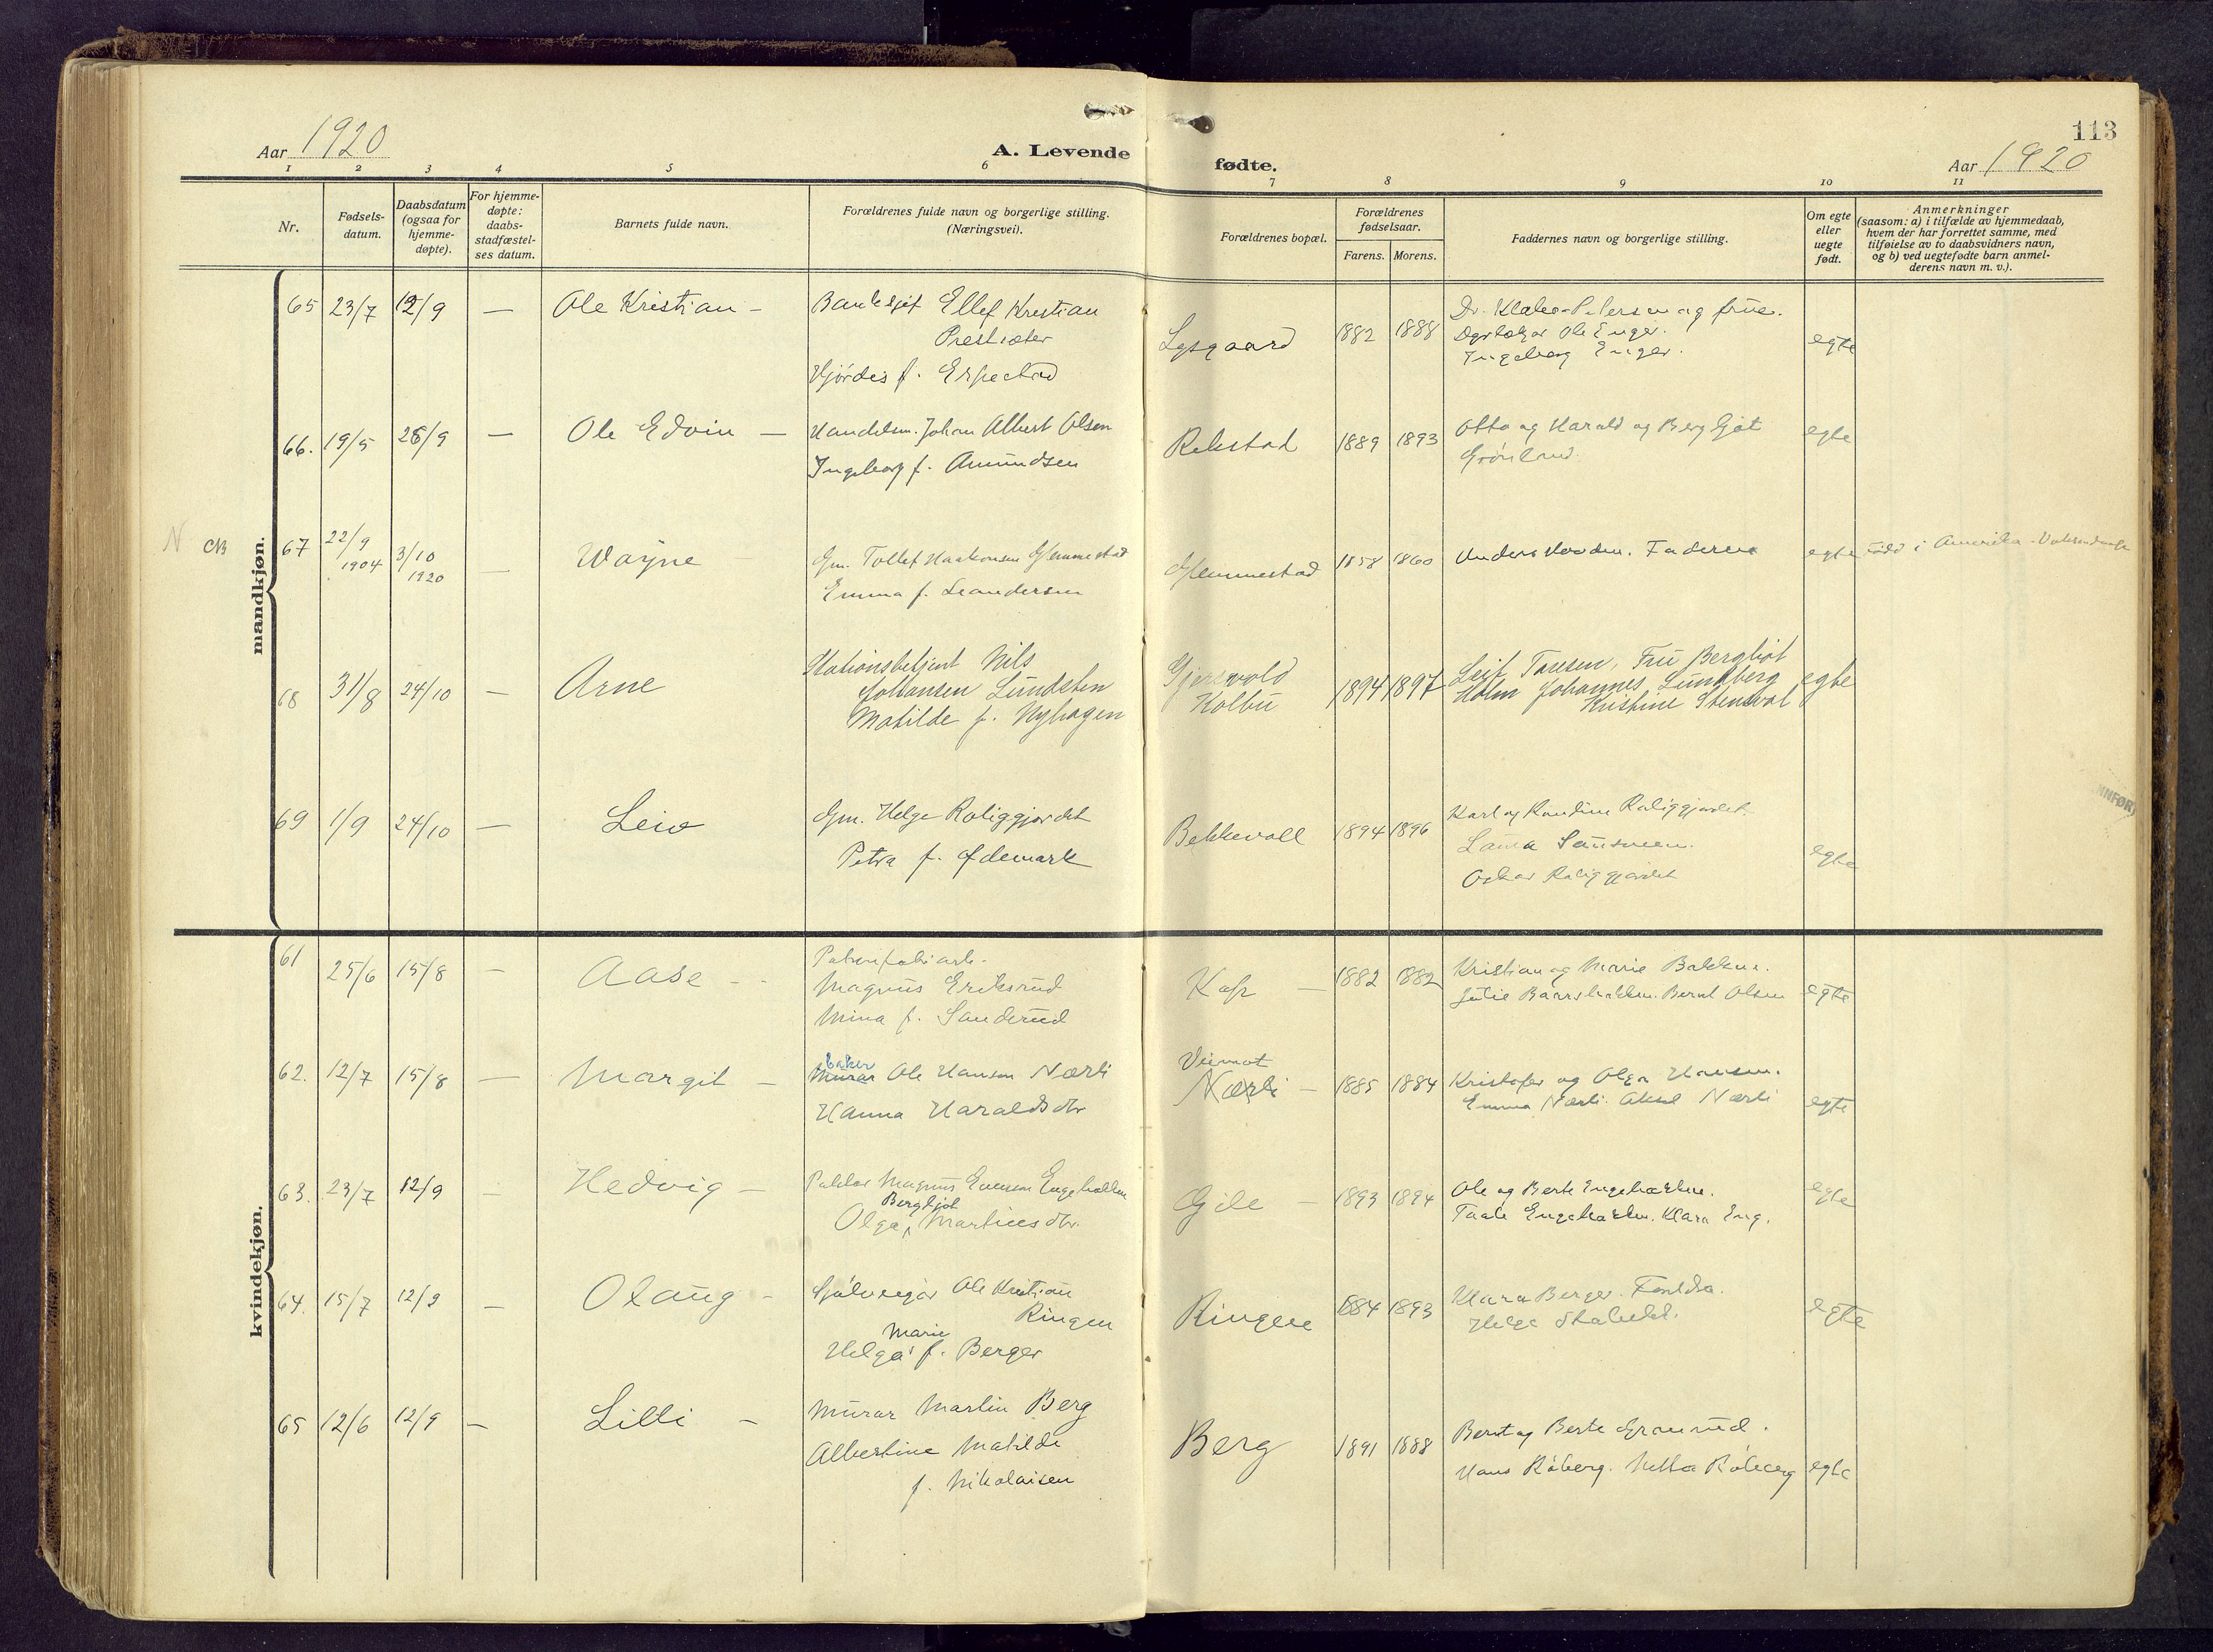 113
Aar 1920
A. Levende fødte.
Aar 1920
1 2 3 4 5 6 7 8 9 10 11
Nr.
Fødsels-
datum.
Daabsdatum
(ogsaa for
hjemme-
døpte).
For hjemme-
døpte:
daabs-
stadfæstel-
ses datum.
Barnets fulde navn.
Forældrenes fulde navn og borgerlige stilling.
(Næringsvei).
Forældrenes bopæl.
Forældrenes
fødselsaar.
Farens. Morens.
Faddernes navn og borgerlige stilling.
Om egte
eller
uegte
født.
Anmerkninger
(saasom: a) i tilfælde av hjemmedaab,
hvem der har forrettet samme, med
tilføielse av to daabsvidners navn,
og b) ved uegtefødte barn anmel-
derens navn m. v.).
mandkjøn.
65 23/7 12/9 — Ole Kristian — Ellef Kristian
Præstsæter
Hjørdis f. Erpestad
Lysgaard 1882 1888
Petersen og frue.
Ole Enger.
Ingeborg Enger.
egte
66. 19/5 26/9 — Ole Edvin — Handelsm. Johan Albert Olsen
Ingeborg f. Amundsen
Rekstad 1889 1893
Otto og Harald og Bergljot
Grönland.
egte
N CB 67 22/9 1904 3/10 1920 — Wayne
Gm. Tollef Haakonsen Glemmestad
Emma f. Leandersen
Glemmestad 1858 1860
Anders Hovden. Faderen
egte født i Amerika - Voksendaab
68 31/8 24/10 — Arne
Stationsbetjent Nils
Johansen Lundsten
Matilde f. Nyhagen
Gjersvold
Kolbu
1894 1897
Leif Tansen, Fru Bergliot
Holm Johannes Lundberg
Kristine Stensval
egte
69 1/9 24/10 — Leiv
Gm. Helge Roliggjordet
Petra f. Ødemark
Bekkevoll 1894 1896
Karl og Roliggjordet.
Laura
Oskar Roliggjordet
egte
INNFØRT
kvindekjøn.
61 25/6 15/8 — Aase —
Magnus Eriksrud
Mina f. Sanderud
Kap — 1882 1882
Kristian og Marie Bakken.
Julie Baarsbakken. Bernt Olsen
egte
62. 12/7 15/8 — Margit —
baker
Murar Ole Hansen Nærli
Hanna Haraldsdtr
Veimot
Nærli — 1885 1884
Kristofer og Olga Hansen.
Emma Nærli. Aksel Nærli
egte
63. 23/7 12/9 — Hedvig —
Magnus Evensen Engebakken
Bergljot
Olga Martinsdtr.
Gile — 1893 1894
Ole og Berte Engebakken.
Engebakken. Klara Eng.
egte
64. 15/7 12/9 — Olaug —
Sjølveigar Ole Kristian
Ringen
Marie
Helga f. Berger
Ringen 1884 1893
Klara Berger.
Helge
egte
65 12/6 12/9 — Lilli —
Murar Martin Berg
Albertine Matilde
f. Nikolaisen
Berg 1891 1888
Bernt og Berte Granrud.
Hans Röberg. Netta Röberg
egte